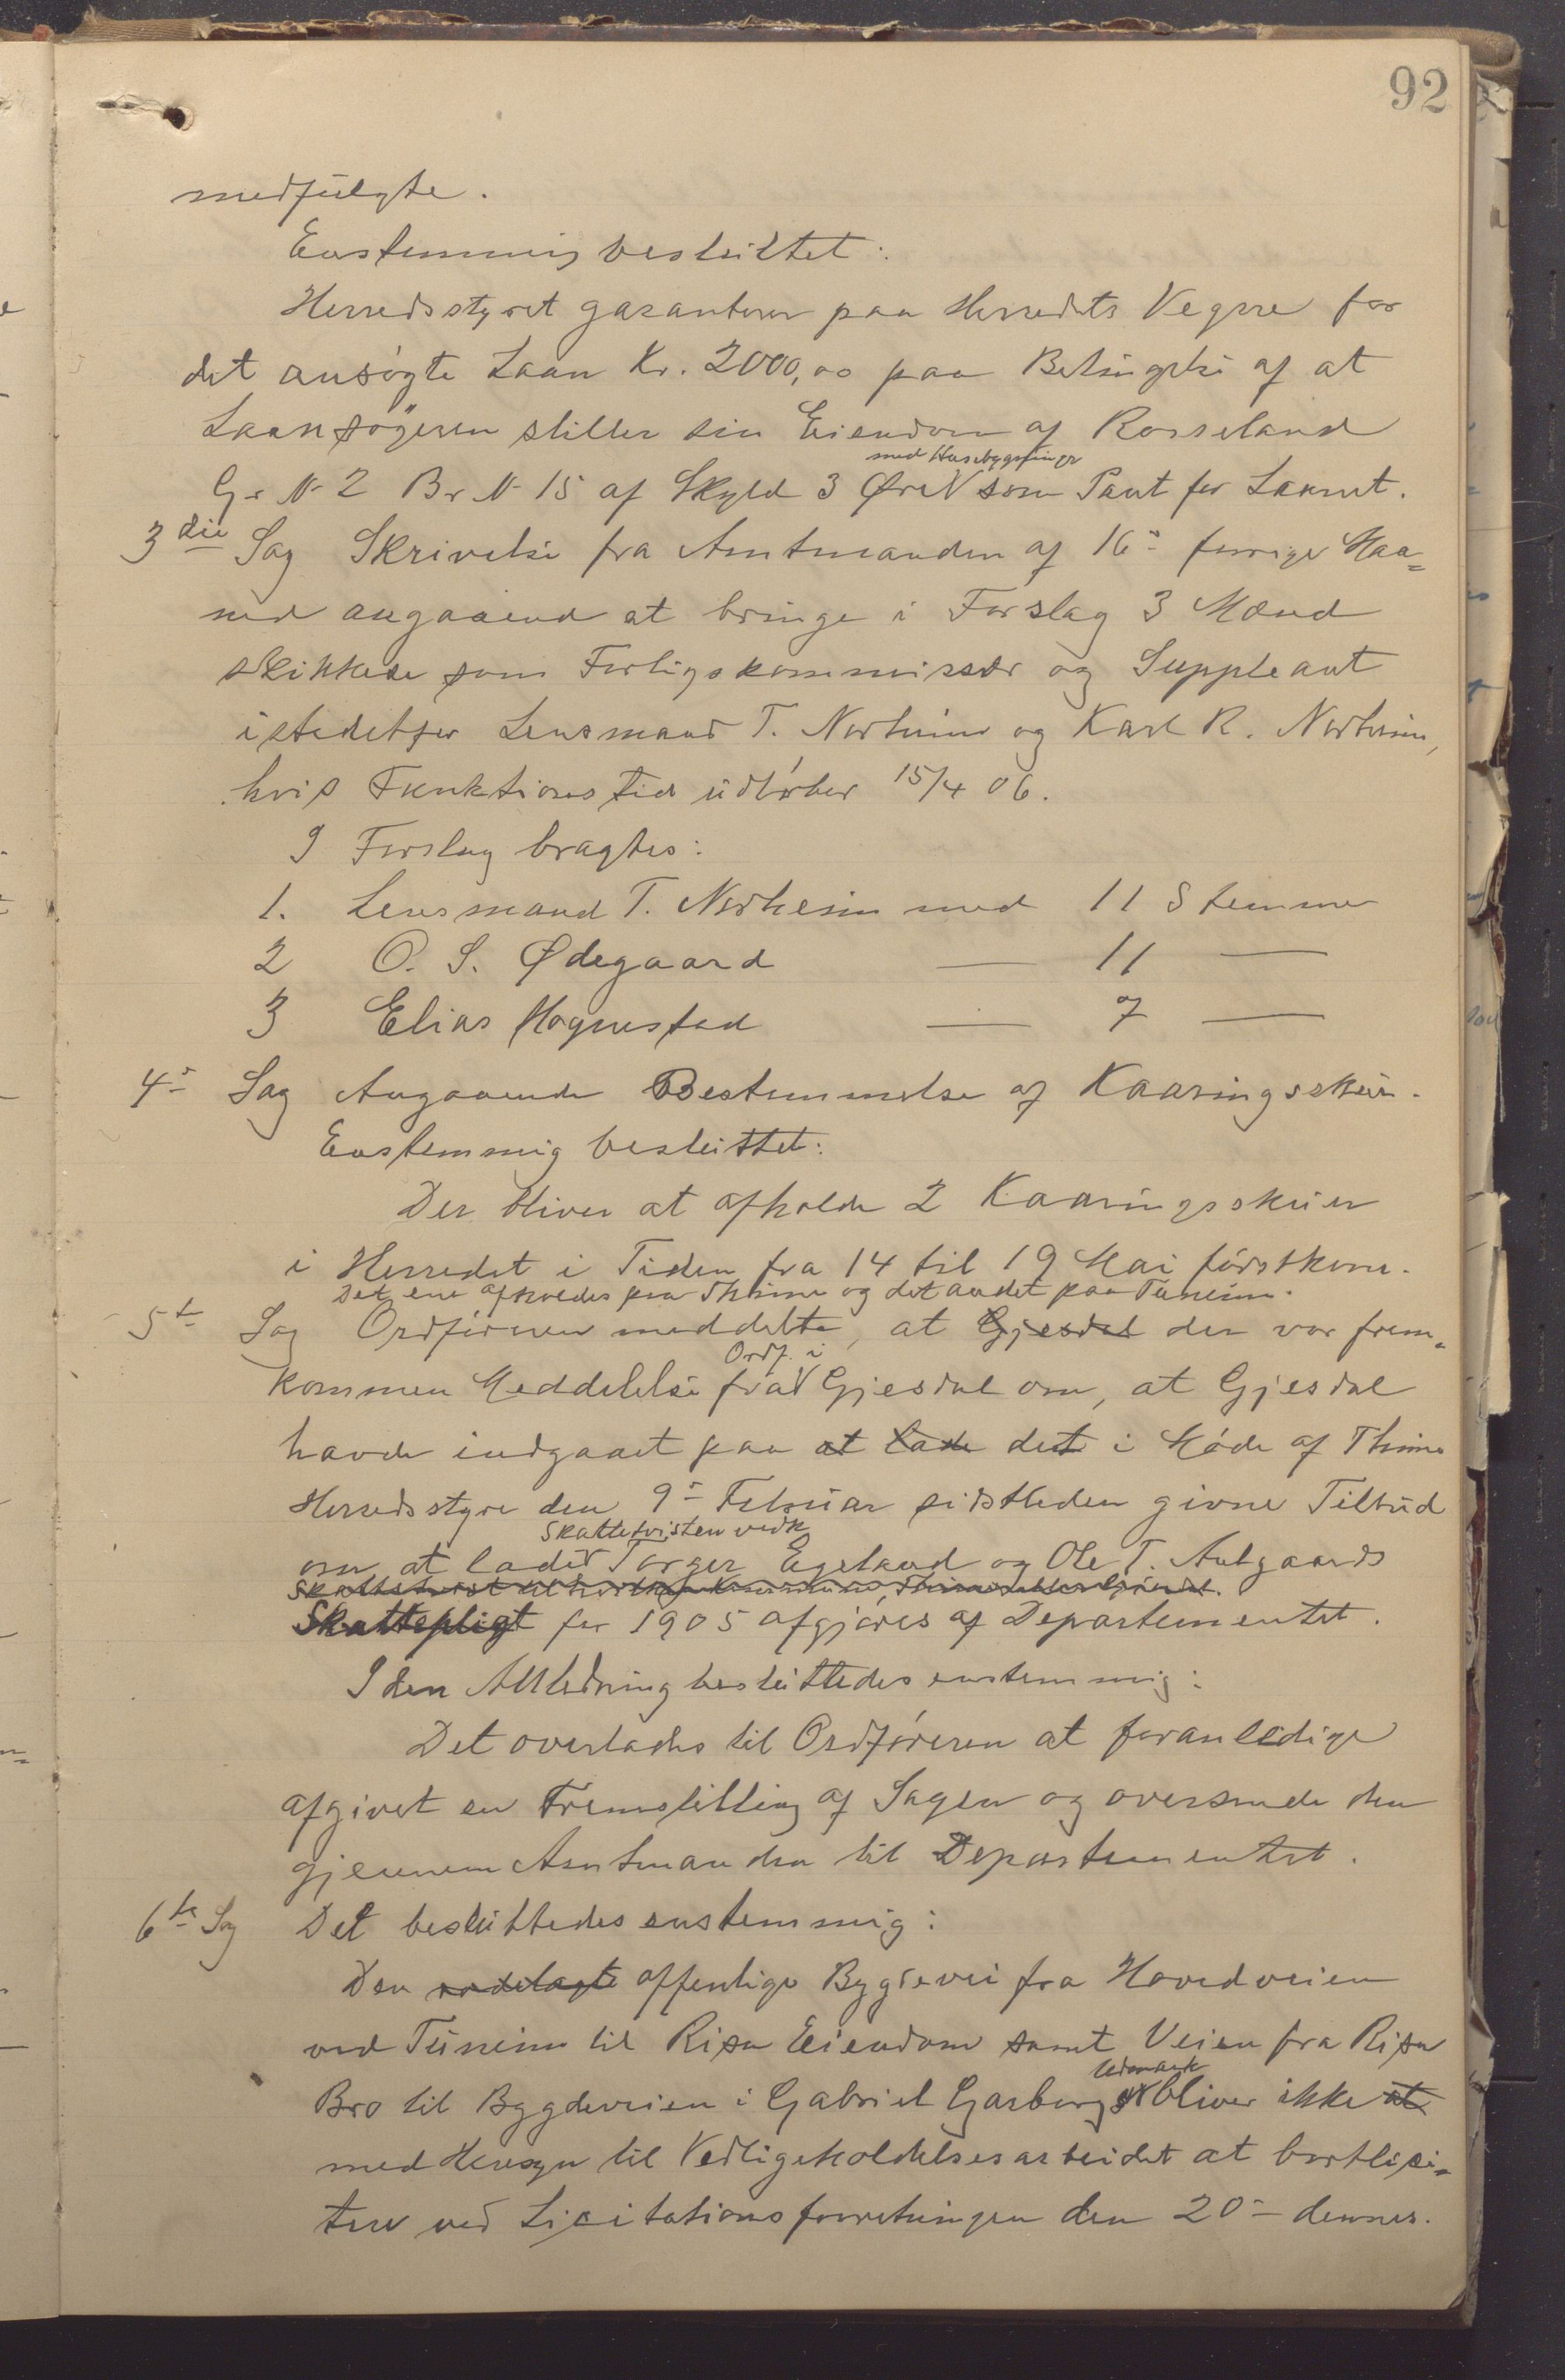 92
medfulgte.
Enstemmig besluttet:
Herredsstyret garanterer paa Herredets Vegne for
det ansøgte Laan Kr. 2000,00 paa Betingelse af at
Laansøgeren stiller sin Eiendom af Rosseland
med Husebygninger
G. N. 2 Br. N. 15 af Skyld 3 Øre som Pant for Laanet.
3die Sag Skrivelse fra Amtmanden af 16de forrige Maa=
ned angaaend at bringe i Forslag 3 Mænd
skikkede som Forligskommissær og Suppleant
istedetfor Lensmand T. Norheim og Karl R. Norheim,
hvis Funktionstid udløber 15/4 06.
I Forslag bragtes:
1. Lensmand T. Norheim med 11 Stemmer
2 O. S. Ødegaard — 11 —
3 Elias Hognestad — 7 —
4de Sag Angaaende Bestemmelse af Kaaringsskuer.
Enstemmig besluttet:
Der bliver at afholde 2 Kaaringsskuer
i Herredet i Tiden fra 14 til 19 Mai førstkom.
Det ene afholdes paa Thime og det andet paa Tuneim.
5te Sag Ordføreren meddelte, at Gjesdal der var frem=
Ordf. i
kommen Meddelelse fra Gjesdal om, at Gjesdal
havde indgaaet paa at lade det i Møde af Thime
Herredsstyre den 9de Februar sidstleden givne Tilbud
Skattetvisten vedk.
om at lade Torger Egeland og Ole T. Aulgaards
Skattepligt for 1905 afgjøres af Departementet.
I den Anledning besluttedes enstemmig:
Det overlades til Ordføreren at foranledige
afgivet en Fremstilling af Sagen og oversende den
gjennem Amtmanden til Departementet.
6te Sag Det besluttedes enstemmig:
Den rodelagte offentlige Bygdevei fra Hovedveien
ved Tuneim til Risa Eiendom samt Veien fra Risa
Udmark
Bro til Bygdeveien i Gabriel Garborgs bliver ikke at
med Hensyn til Vedligeholdelsesarbeidet at bortlici=
tere ved Licitationsforretningen den 20de dennes.